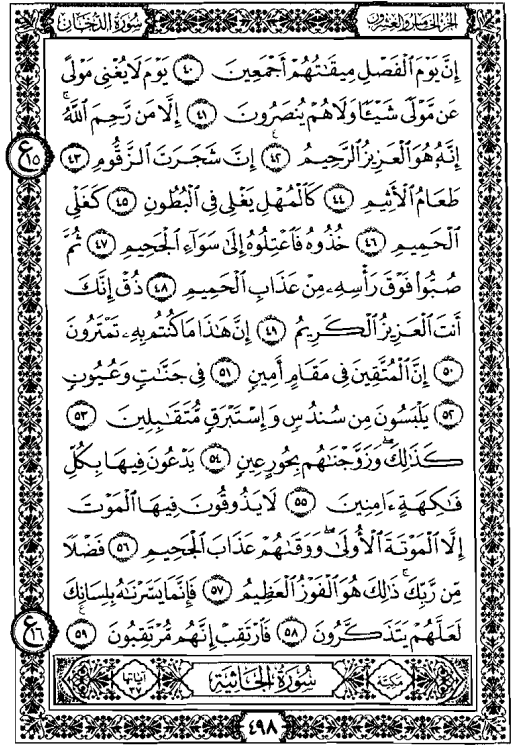 سُورَةُ الدُّخَانِ الجُزءُ الخَامِسُ وَالعِشْرُونَ
إِنَّ يَوْمَ الْفَصْلِ مِيقَٰتُهُمْ أَجْمَعِينَ ٤٠ يَوْمَ لَا يُغْنِى مَوْلًى
عَن مَّوْلًى شَيْـًٔا وَلَا هُمْ يُنصَرُونَ ٤١ إِلَّا مَن رَّحِمَ ٱللَّهُ ۚ
إِنَّهُۥ هُوَ الْعَزِيزُ الرَّحِيمُ ٤٢ إِنَّ شَجَرَتَ الزَّقُّومِ ٤٣
ع ١٥
طَعَامُ الْأَثِيمِ ٤٤ كَالْمُهْلِ يَغْلِى فِى الْبُطُونِ ٤٥ كَغَلْىِ
الْحَمِيمِ ٤٦ خُذُوهُ فَاعْتِلُوهُ إِلَىٰ سَوَآءِ الْجَحِيمِ ٤٧ ثُمَّ
صُبُّوا۟ فَوْقَ رَأْسِهِۦ مِنْ عَذَابِ الْحَمِيمِ ٤٨ ذُقْ إِنَّكَ
أَنتَ الْعَزِيزُ الْكَرِيمُ ٤٩ إِنَّ هَٰذَا مَا كُنتُم بِهِۦ تَمْتَرُونَ
٥٠ إِنَّ الْمُتَّقِينَ فِى مَقَامٍ أَمِينٍ ٥١ فِى جَنَّٰتٍ وَعُيُونٍ
٥٢ يَلْبَسُونَ مِن سُندُسٍ وَإِسْتَبْرَقٍ مُّتَقَٰبِلِينَ ٥٣
كَذَٰلِكَ وَزَوَّجْنَٰهُم بِحُورٍ عِينٍ ٥٤ يَدْعُونَ فِيهَا بِكُلِّ
فَٰكِهَةٍ ءَامِنِينَ ٥٥ لَا يَذُوقُونَ فِيهَا الْمَوْتَ
إِلَّا الْمَوْتَةَ الْأُولَىٰ ۖ وَوَقَىٰهُمْ عَذَابَ الْجَحِيمِ ٥٦ فَضْلًا
مِّن رَّبِّكَ ۚ ذَٰلِكَ هُوَ الْفَوْزُ الْعَظِيمُ ٥٧ فَإِنَّمَا يَسَّرْنَٰهُ بِلِسَانِكَ
لَعَلَّهُمْ يَتَذَكَّرُونَ ٥٨ فَارْتَقِبْ إِنَّهُم مُّرْتَقِبُونَ ٥٩
ع ١٦
مَكِّيَّة سُورَةُ الجَاثِيَةِ آيَاتُهَا ٣٧
٤٩٨